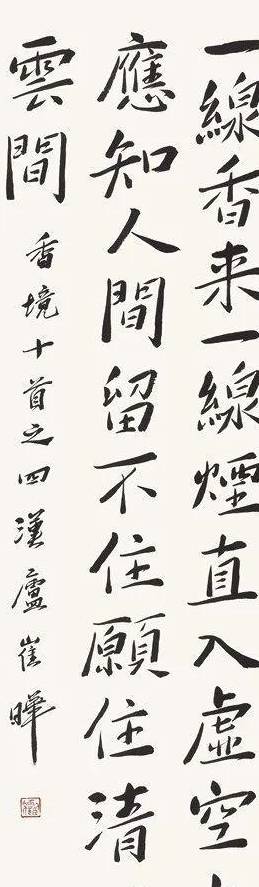 一線香来一線煙直入虛空
應知人間留不住願住清
雲間
香境十首之四漢廬崔暉